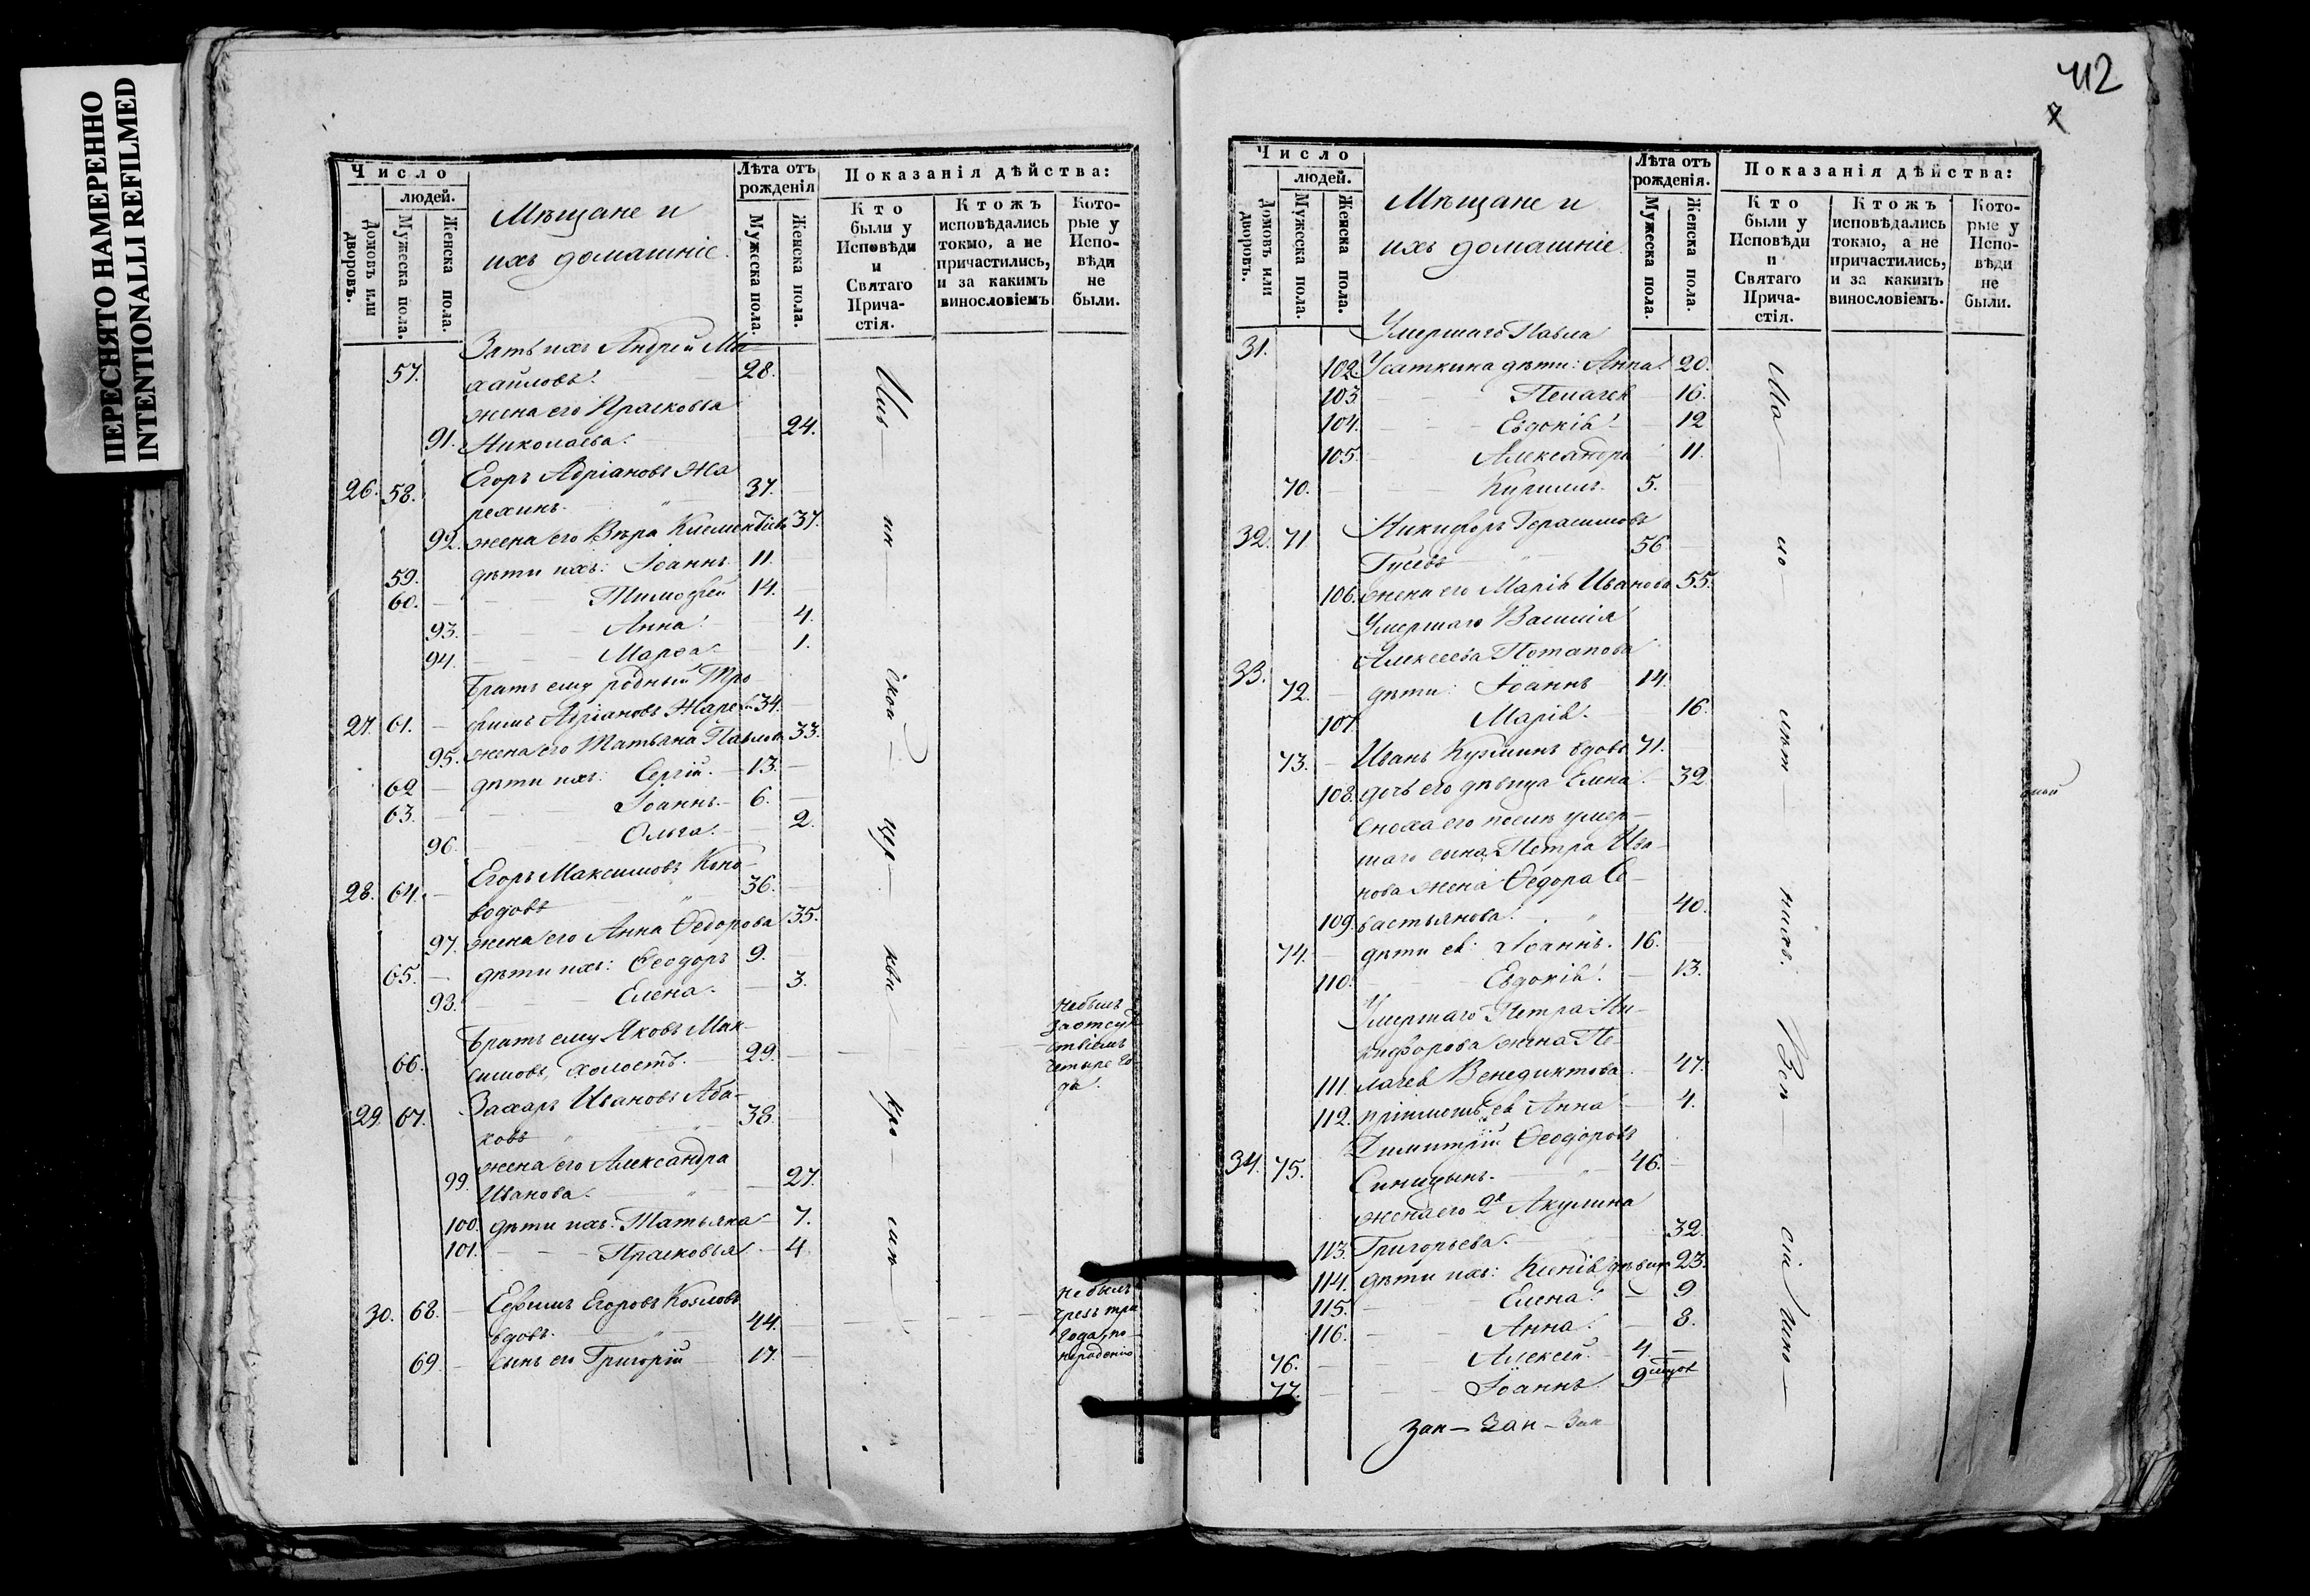 ПЕРЕСНЯТО НАМЕРЕННО
INTENTIONALLI REFILMED
Число
людей.
Домовъ или дворовъ.
Мужеска пола.
Женска пола.
Мѣщане и
ихъ домашніе.
Лѣта отъ
рожденія
Мужеска пола.
Женска пола.
Показанія дѣйства:
Кто
были у
Исповѣди
и
Святаго
Прича-
стія.
Ктожъ
исповѣдались
токмо, а не
причастились,
и за какимъ
винословіемъ
Кото-
рые у
Испо-
вѣди
не
были.
Зять ихъ Андрей Ми-
57. хайловъ. 28.
жена его Прасковья
91. Николаева. 24.
Егоръ Адріановъ Жа
26. 58. рехинъ. 37.
92. жена его Вѣра Климентіева 37.
59. дѣти ихъ: Іоаннъ 11.
60. Тимофей 14.
93. Анна 4.
94. Марѳа 1.
Братъ ему родный Тро-
27. 61. фимъ Адріановъ Жарех 34.
95. жена его Татьяна Павлова 33.
62 дѣти ихъ: Сергій. 13.
63. Іоаннъ. 6.
96. Ольга. 2.
Егоръ Максимовъ Коно-
28. 64. водовъ 36.
97. жена его Анна Ѳедорова 35.
65. дѣти ихъ: Ѳеодоръ 9.
98. Елена. 3.
Братъ ему Яковъ Мак-
66. симовъ, холостъ. 29.
не былъ
за отсут
ствіемъ
четыре го-
да.
Захаръ Ивановъ Аба-
29. 67. ховъ 38.
жена его Александра
99. Иванова. 27.
100. дѣти ихъ: Татьяна 7.
101. Прасковья 4.
30. 68. Ефимъ Егоровъ Козловъ
вдовъ. 44.
не былъ
чрезъ три
года, по
нерадѣнію
69. сынъ его Григорій 17.
412
7
Число
людей.
Домовъ или дворовъ.
Мужеска пола.
Женска пола.
Мѣщане и
ихъ домашніе.
Лѣта отъ
рожденія.
Мужеска пола.
Женска пола.
Показанія дѣйства:
Кто
были у
Исповѣди
и
Святаго
Прича-
стія.
Ктожъ
исповѣдались
токмо, а не
причастились,
и за какимъ
винословіемъ.
Кото-
рые у
Испо-
вѣди
не
были.
31. Умершаго Павла
102 Усаткина дѣти: Анна 20.
103. Пелагея 16.
104. Евдокія 12
105. Александра 11.
70. Кириллъ. 5.
32. 71 Никифоръ Герасимовъ
Гусевъ 56
106. жена его Марія Иванова 55.
Умершаго Василія
Алексеева Потапова
33. 72. дѣти: Іоаннъ 14.
107 Марія. 16.
73. Иванъ Кузминъ вдовъ 71.
108. дочь его дѣвица Елена 32.
Сноха его послѣ умер-
шаго сына Петра Ива-
нова жена Ѳедора Се-
109. вастьянова. 40.
74. дѣти ея: Іоаннъ. 16.
110. Евдокія. 13.
Умершаго Петра Ни-
кифорова жена Пе-
111. лагея Венедиктова. 47.
112. пріимышъ ея Анна 4.
Димитрій Ѳеодоровъ
34. 75. Синицынъ. 46.
жена его 2я Акулина
113. Григорьева. 32.
114. дѣти ихъ: Ксенія дѣвица 23.
115. Елена. 9
116. Анна. 8.
76. Алексій. 4.
77. Іоаннъ 9 мцов
Зан - Зан - Зан